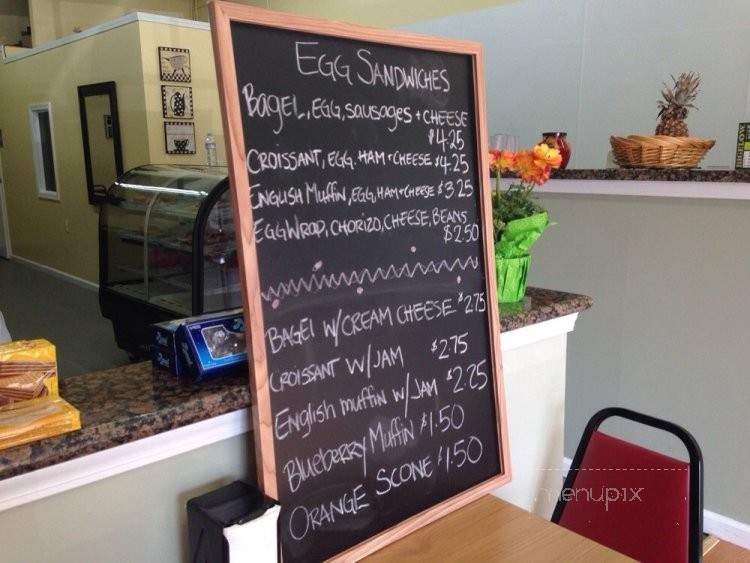 EGG SANDWICHES
Bagel, EGG, sausages + CHEESE
$4.25
CROISSANT, EGG. HAM + CHEESE $4.25
ENGLISH Muffin, EGG, HAM + CHEESE $3.25
EGG WRAP, CHORIZO, CHEESE, BEANS
$2.50
BAGEl W/CREAM CHEESE $2.75
CROISSANT W/JAM $2.75
English muffin w/JAM $2.25
Blueberry Muffin $1.50
ORANGE SCONE $1.50
menupix